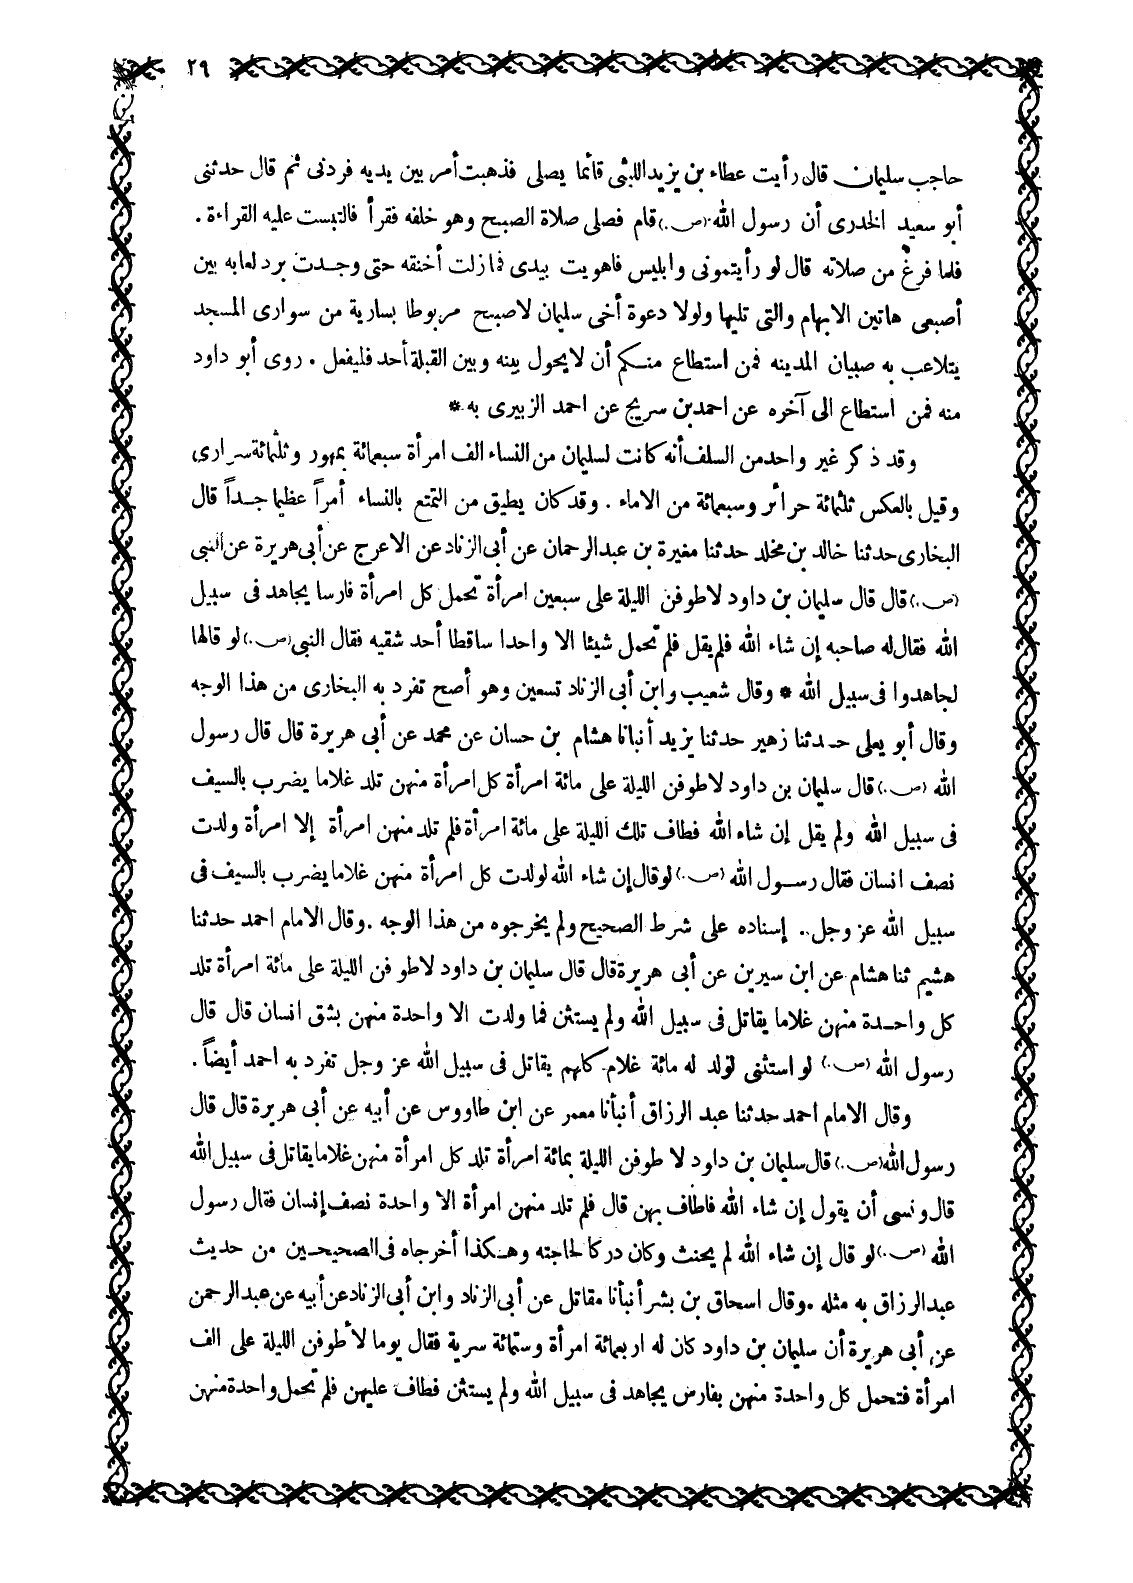 ٢٩
حاجب سليمان قال رأيت عطاء بن يزيد الليثى قائما يصلى فذهبت أمر بين يديه فردنى ثم قال حدثنى
أبو سعيد الخدرى أن رسول الله (ص.) قام فصلى صلاة الصبح وهو خلفه فقرأ فالتبست عليه القراءة .
فلما فرغ من صلاته قال لو رأيتمونى وابليس فاهويت بيدى فمازلت أخنقه حتى وجدت برد لعابه بين
أصبعى هاتين الابهام والتى تليها ولولا دعوة أخى سليمان لاصبح مربوطا بسارية من سوارى المسجد
يتلاعب به صبيان المدينه فمن استطاع منكم أن لا يحول بينه وبين القبلة أحد فليفعل . روى أبو داود
منه فمن استطاع الى آخره عن احمد بن سريج عن احمد الزبيرى به *
وقد ذكر غير واحد من السلف أنه كانت لسليمان من النساء الف امرأة سبعمائة بمهور وثلثمائة سرارى
وقيل بالعكس ثلثمائة حرائر وسبعمائة من الاماء . وقد كان يطيق من التمتع بالنساء أمراً عظيما جداً قال
البخارى حدثنا خالد بن مخلد حدثنا مغيرة بن عبد الرحمان عن أبى الزناد عن الاعرج عن أبى هريرة عن النبى
(ص.) قال قال سليمان بن داود لاطوفن الليلة على سبعين امرأة تحمل كل امرأة فارسا يجاهد فى سبيل
الله فقال له صاحبه إن شاء الله فلم يقل فلم تحمل شيئا الا واحدا ساقطا أحد شقيه فقال النبى (ص.) لو قالها
لجاهدوا فى سبيل الله * وقال شعيب وابن أبى الزناد تسعين وهو أصح تفرد به البخارى من هذا الوجه
وقال أبو يعلى حدثنا زهير حدثنا يزيد أنبانا هشام بن حسان عن محمد عن أبى هريرة قال قال رسول
الله (ص.) قال سليمان بن داود لاطوفن الليلة على مائة امرأة كل امرأة منهن تلد غلاما يضرب بالسيف
فى سبيل الله ولم يقل إن شاء الله فطاف تلك الليلة على مائة امرأة فلم تلد منهن امرأة إلا امرأة ولدت
نصف انسان فقال رسول الله (ص.) لو قال إن شاء الله لولدت كل امرأة منهن غلاما يضرب بالسيف فى
سبيل الله عز وجل . إسناده على شرط الصحيح ولم يخرجوه من هذا الوجه . وقال الامام احمد حدثنا
هشيم ثنا هشام عن ابن سيرين عن أبى هريرة قال قال سليمان بن داود لاطوفن الليلة على مائة امرأة تلد
كل واحدة منهن غلاما يقاتل فى سبيل الله ولم يستثن فما ولدت الا واحدة منهن بشق انسان قال قال
رسول الله (ص.) لو استثنى لولد له مائة غلام كلهم يقاتل فى سبيل الله عز وجل تفرد به احمد أيضاً .
وقال الامام احمد حدثنا عبد الرزاق أنبأنا معمر عن ابن طاووس عن أبيه عن أبى هريرة قال قال
رسول الله (ص.) قال سليمان بن داود لا طوفن الليلة بمائة امرأة تلد كل امرأة منهن غلاما يقاتل فى سبيل الله
قال ونسى أن يقول إن شاء الله فاطاف بهن قال فلم تلد منهن امرأة الا واحدة نصف إنسان فقال رسول
الله (ص.) لو قال إن شاء الله لم يحنث وكان دركا لحاجته وهكذا أخرجاه فى الصحيحين من حديث
عبد الرزاق به مثله . وقال اسحاق بن بشر أنبأنا مقاتل عن أبى الزناد وابن أبى الزناد عن أبيه عن عبد الرحمن
عن أبى هريرة أن سليمان بن داود كان له اربعمائة امرأة وستمائة سرية فقال يوما لأطوفن الليلة على الف
امرأة فتحمل كل واحدة منهن بفارس يجاهد فى سبيل الله ولم يستثن فطاف عليهن فلم تحمل واحدة منهن